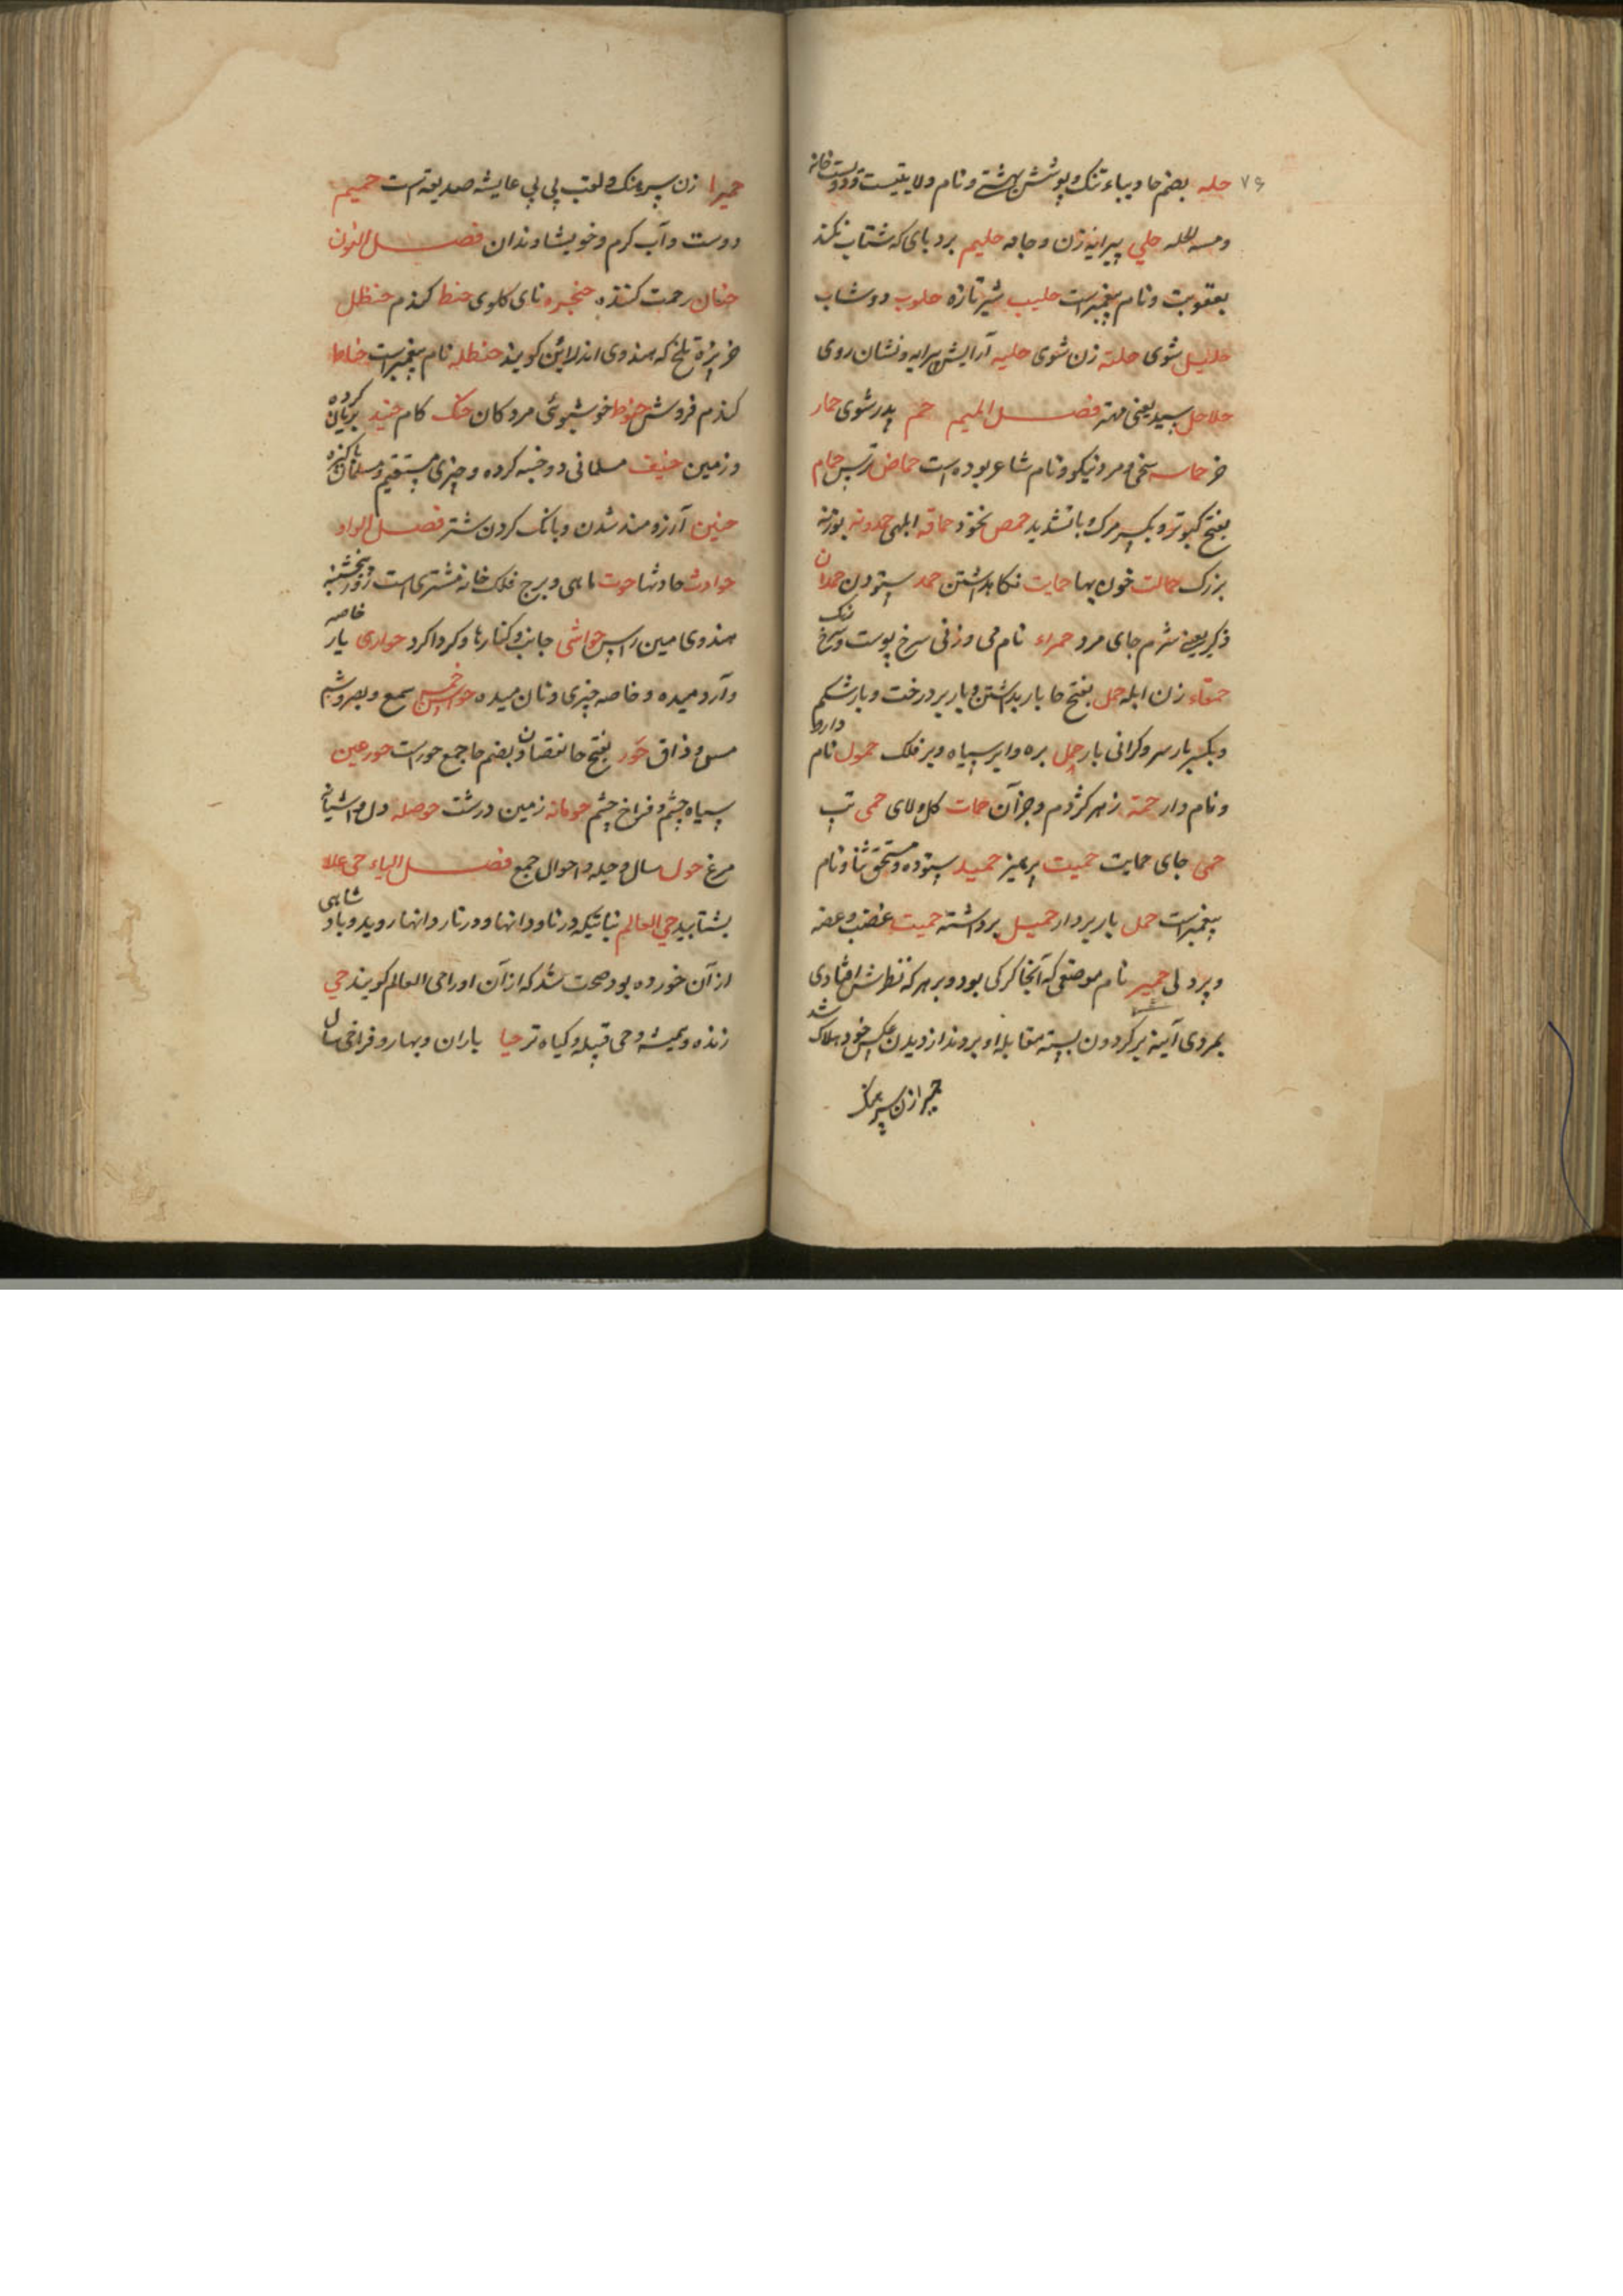 ۷۶ حله بضم حا دیباء تنک و پوشش بهشتی و نام ولایتیست و دویست خانه
حلي پیرایه زن و جامه حلیم بردبای که شتاب نکند
بعقوبت و نام پیغمبرست حلیب شیر تازه حلوب دوشاب
حلیل شوی حلته زن شوی حلیه آرایش و پیرایه و نشان روی
حلاحل سید یعنی مهتر فصل المیم حم پدر شوی حمار
خر حماسه سخی و مرد نیکو و نام شاعر بوده است حماض ترس حمام
بفتح کبوتر و بکسر مرک و با تشدید حمص نخود حماقه ابلهی حمدونه بوزنه
بزرک حمالت خون بها حمایت نکاهداشتن حمد ستودن حمدان
ذکر یعنی شرم جای مرد حمراء نام می و زنی سرخ پوست و سرخ رنک
حمقاء زن ابله حمل بفتح حا بار برداشتن و بار بر درخت و بار شکم
و بکسر بار سر و کرانی بار حمل بره و ابر سیاه و بر فلک حمول نام دارو
و نام دار حمة زهر کژدم و جز آن حمات کل و لای حمی تب
حمی جای حمایت حمیت پرهیز حمید ستوده و مستحق ثنا و نام
پیغمبرست حمل بار بردار حمیل برداشته حمیت غضب و غصه
و پردلی حمیر نام موضعی که آنجا کرکی بود و بر هر که نظرش افتادی
بمردی آینه بر کردون بسته مقابله او بردند از دیدن عکس خود هلاک شد
حمیرا زن سپید رنک
حمیرا زن سپید رنک و لقب بی بی عایشه صدیقه است حمیم
دوست و آب کرم و خویشاوندان فصل النون
حنان رحمت کننده حنجره نای کلوی حنط کندم حنظل
خربزه تلخ که هندوی اندراین کویند حنظله نام پیغمبرست حناط
کندم فروش حنوط خوشبوئی مردکان حنک کام حنید بریان کرده
و زمین حنیف مسلمانی و و ختنه کرده و چیزی مستقیم و مسلمان پاکیزه
حنین آرزومند شدن و بانک کردن شتر فصل الواو
حوادث حادثها حوت ماهی و برج فلک خانه مشتری است روز پنجشنبه
هندوی مین راس حواشی جانب و کنارها و کرداکرد حواری یار خاصه
و آرد میده و خاصه چیزی و نان میده حواس خمس سمع و بصر و شم
مس و ذاق حور بفتح حا نقصان و بضم حا جمع حورست حور عین
سیاه چشم و فراخ چشم حومانه زمین درشت حوصله دل و آشیانه
مرغ حول سال و حیله و احوال جمع فصل الیاء حی علا
بشتابید حي العالم نباتیکه در ناودانها و در تار و انها روید و باد شاهی
از آن خورده بود صحت شد که از آن او را حی العالم کویند حي
زنده و همیشه و حی قبیله و کیاه تر حیا باران و بهار و فراخی سال